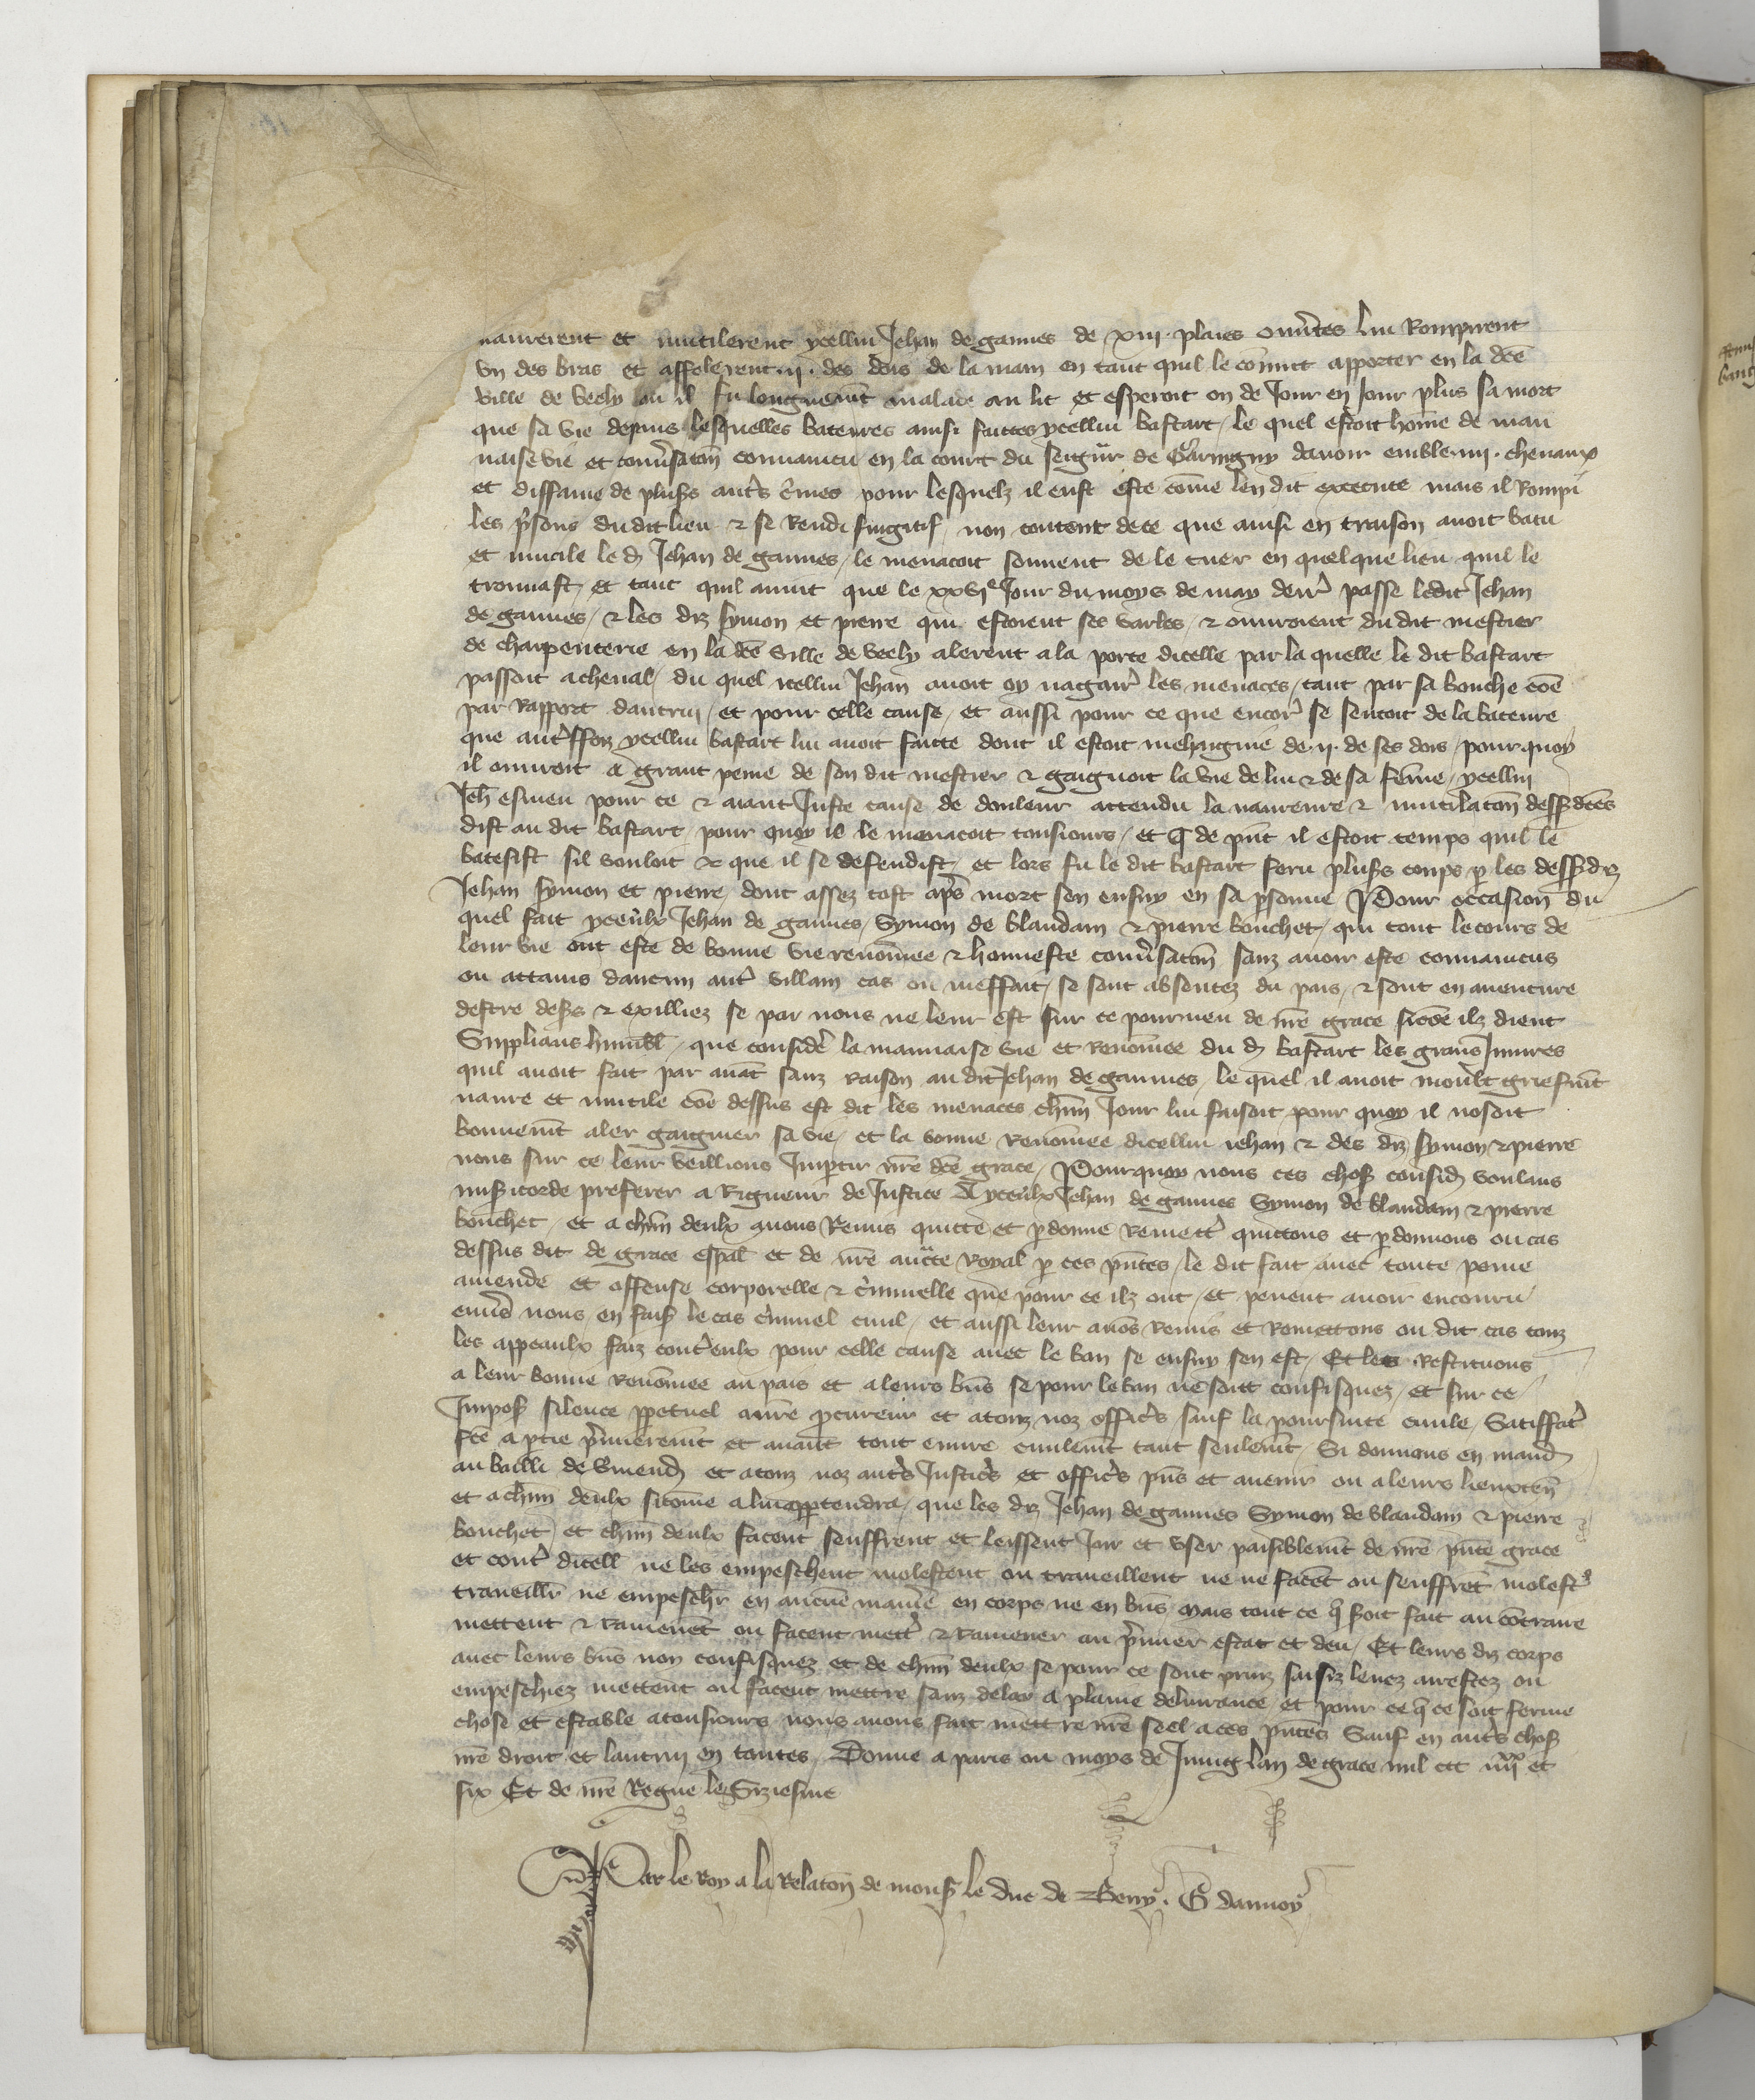 navrerent et mutilerent ycellui Jehan de gannes de xiii. plaies ouv̾tes lui Rompirent
vn des bras et affolerent .ii. des dois de la main en tant quil le cōuint apporter en la dc̄e
ville de veely ou il fu longuemt̄ malade au lit et esperoit on de Jour en Jour plus sa mort
que sa vie depuis lesquelles bateures ainsi faittes ycellui bastart / le quel estoit hōme de mau
uaise vie et conu̾sacōn conuaincu en la court du seigũr de davoir emble .iiii. cheuaux
et diffame de pluss̾ aut̾s c̾mes pour lesquelz il eust este cōme len dit execute mais il Rompi
les p̾sons du dit lieu ⁊ se Rendi fuigitif / non content de ce que ainsi en traison auoit batu
et mutile le d̾ Jehan de gannes / le menacoit souuent de le tuer en quelque lieu quil le
trouuast / et tant quil auint que le xxvie Jour du moys de may derr̾ passe ledit Jehan
de gannes / ⁊ les diz symon et pierre qui estoient ses varles / ⁊ ouuroient du dit mestier
de charpenterie en la dc̄e ville de veely alerent a la porte dicelle par la quelle le dit bastart
passoit a cheual / du quel icellui Jehan auoit oy nagair̾ les menaces / tant par sa bouche cōe
par Rapport dautrui / et pour celle cause / et aussi pour ce que encor̾ se sentoit de la bateure
que aut̾ffoiz ycellui bastart lui auoit faitte dont il estoit mehaignie de .ii. de ses dois / pour quoy
il ouuroit a grant peine de son dit mestier ⁊ gaignoit la vie de lui ⁊ de sa fēme / ycellui
Jeh̄ esmeu pour ce ⁊ aiant Juste cause de douleur attendu la naureure ⁊ mutilacōn dessusdc̄es
dist au dit bastart pour quoy il le menacoit tousiours / et q̄ de pn̄t il estoit temps quil le
batesist sil vouloit ⁊ que il se defendist / et lors fu le dit bastart feru pluss̾ coups p̱ les dessusd̾
Jehan symon et pierre / dont assez tost ap̾s mort sen ensuy en sa p̱sonne Pour occasion du
quel fait yceulx Jehan de gannes / Symon de blandain ⁊ pierre bouchet / qui tout le cours de
leur vie ont este de bonne vie renōmee ⁊ honneste conu̾sacōn sanz auoir este conuaincus
ou attains dautun aut̾ villain cas ou meffait / se sont absentez du pais / ⁊ sont en auenture
destre des̾s ⁊ exilliez se par nous ne leur est sur ce pourueu de nr̄e grace sicōe ilz dient
Supplians humbl̄ / que consider̾ la mauuaise vie et Renōmee du d̾ bastart les grans Iniures
quil auoit fait par auāt sanz raison au dit Jehan de gannes / le quel il auoit moult griefmt̄
naure et mutile cōe dessus est dit les menaces ch̄un Jour lui faisoit pour quoy il nosoit
bonnemt̄ aler gaigner sa vie / et la bonne renōmee dicellui iehan ⁊ des diz symon ⁊ pierre
nous sur ce leur veillions Imp̱tir nr̄e dc̄e grace / Pourquoy nous ces chos̾ consid̾ voulans
mis̾icorde preferer a Rigueur de Justice A yceulx Jehan de gannes Symon de blandain ⁊ pierre
bouchet / et a ch̄un deulx auons Remis quitte et p̱donne remett̾ quittons et p̱donnons ou cas
dessus dit de grace esp̄al et de nr̄e auc̄te Royal p̱ ces pn̄tes / le dit fait auec toute peine
amende et offense corporelle ⁊ c̾iminelle que pour ce ilz ont / et peuent auoir encouru
enu̾s nous en fais̾ le cas c̾iminel ciuil / et aussi leur auōs remis et Remettons ou dit cas touz
les appeaulx faiz cont̾ eulx pour celle cause auec le ban se ensuy sen est / Et les Restituons
a leur bonne renōmee au pais et a leurs bn̄s se pour le ban ne soīt confisquez / et sur ce
Impos̾ silence p̱petuel a nr̄e p̱cureur et a touz noz offic̾s sauf la poursuite ciuile / Satiffac̾
fc̄e a p̱tie p̾mieremt̄ et auant tout euure ciuilemt̄ tant seulemt̄ / Si donnons en mand̾
au bailli de v̾mend̾ et a touz noz aut̾s Justic̾s et offic̾s pn̄s et auenir ou a leurs lieuxten̄
et a ch̄un deulx sicōme a lui app̱tendra / que les diz Jehan de gannes Symon de blandain ⁊ pierre
bouchet / et ch̄un deulx facent seuffrent et leissent Joir et vser paisiblemt̄ de nr̄e pn̄te grace
et cont̾ dicell̄ ne les empeschent molestent ou traueillent ne ne facēt ou seuffrēt molest̾
traueill̾r ne empesch̾r en aucūe manie̾ en corps ne en bn̄s mais tout ce q̄ soit fait au cōtraire
mettent ⁊ ramenēt ou facent mett̾ ⁊ ramener au p̾mier estat et deu / Et leurs diz corps
auec leurs bn̄s non confisquez et de ch̄un deulx se pour ce sont prins saisiz leuez arrestez ou
empeschiez mettent ou facent mettre sanz delay a plaine deliurance / et pour ce q̄ ce soit ferme
chose et estable a tousiours nous auons fait mettre nr̄e seel a ces pn̄tes Sauf en aut̾s chos̾
nr̄e droit et lautrui en toutes / Donne a paris ou moys de Juing lan de grace mil ccc iiiixx et
six Et de nr̄e Regne le siziesme
Par le Roy a la Relacōn de mons̾ le duc de Berry. G dannoy